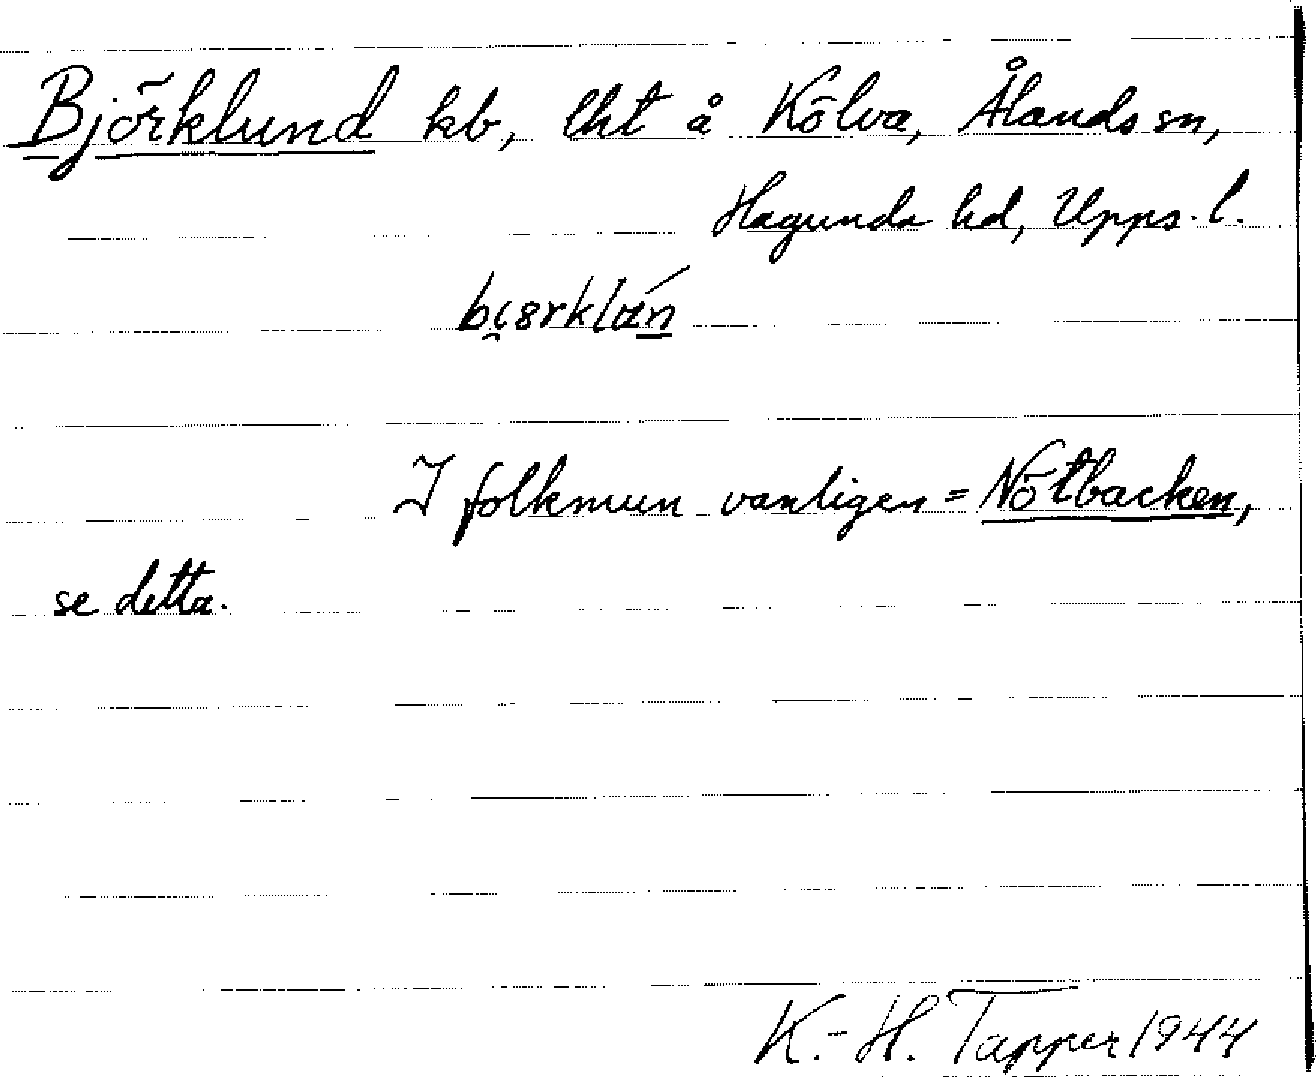 Björklund kb, lht å Kölva, Ålands sn,
Hagunda hd, Upps. l.
I folkmun vanligen = Nötbacken,
se detta.
K.-H. Tapper 1944